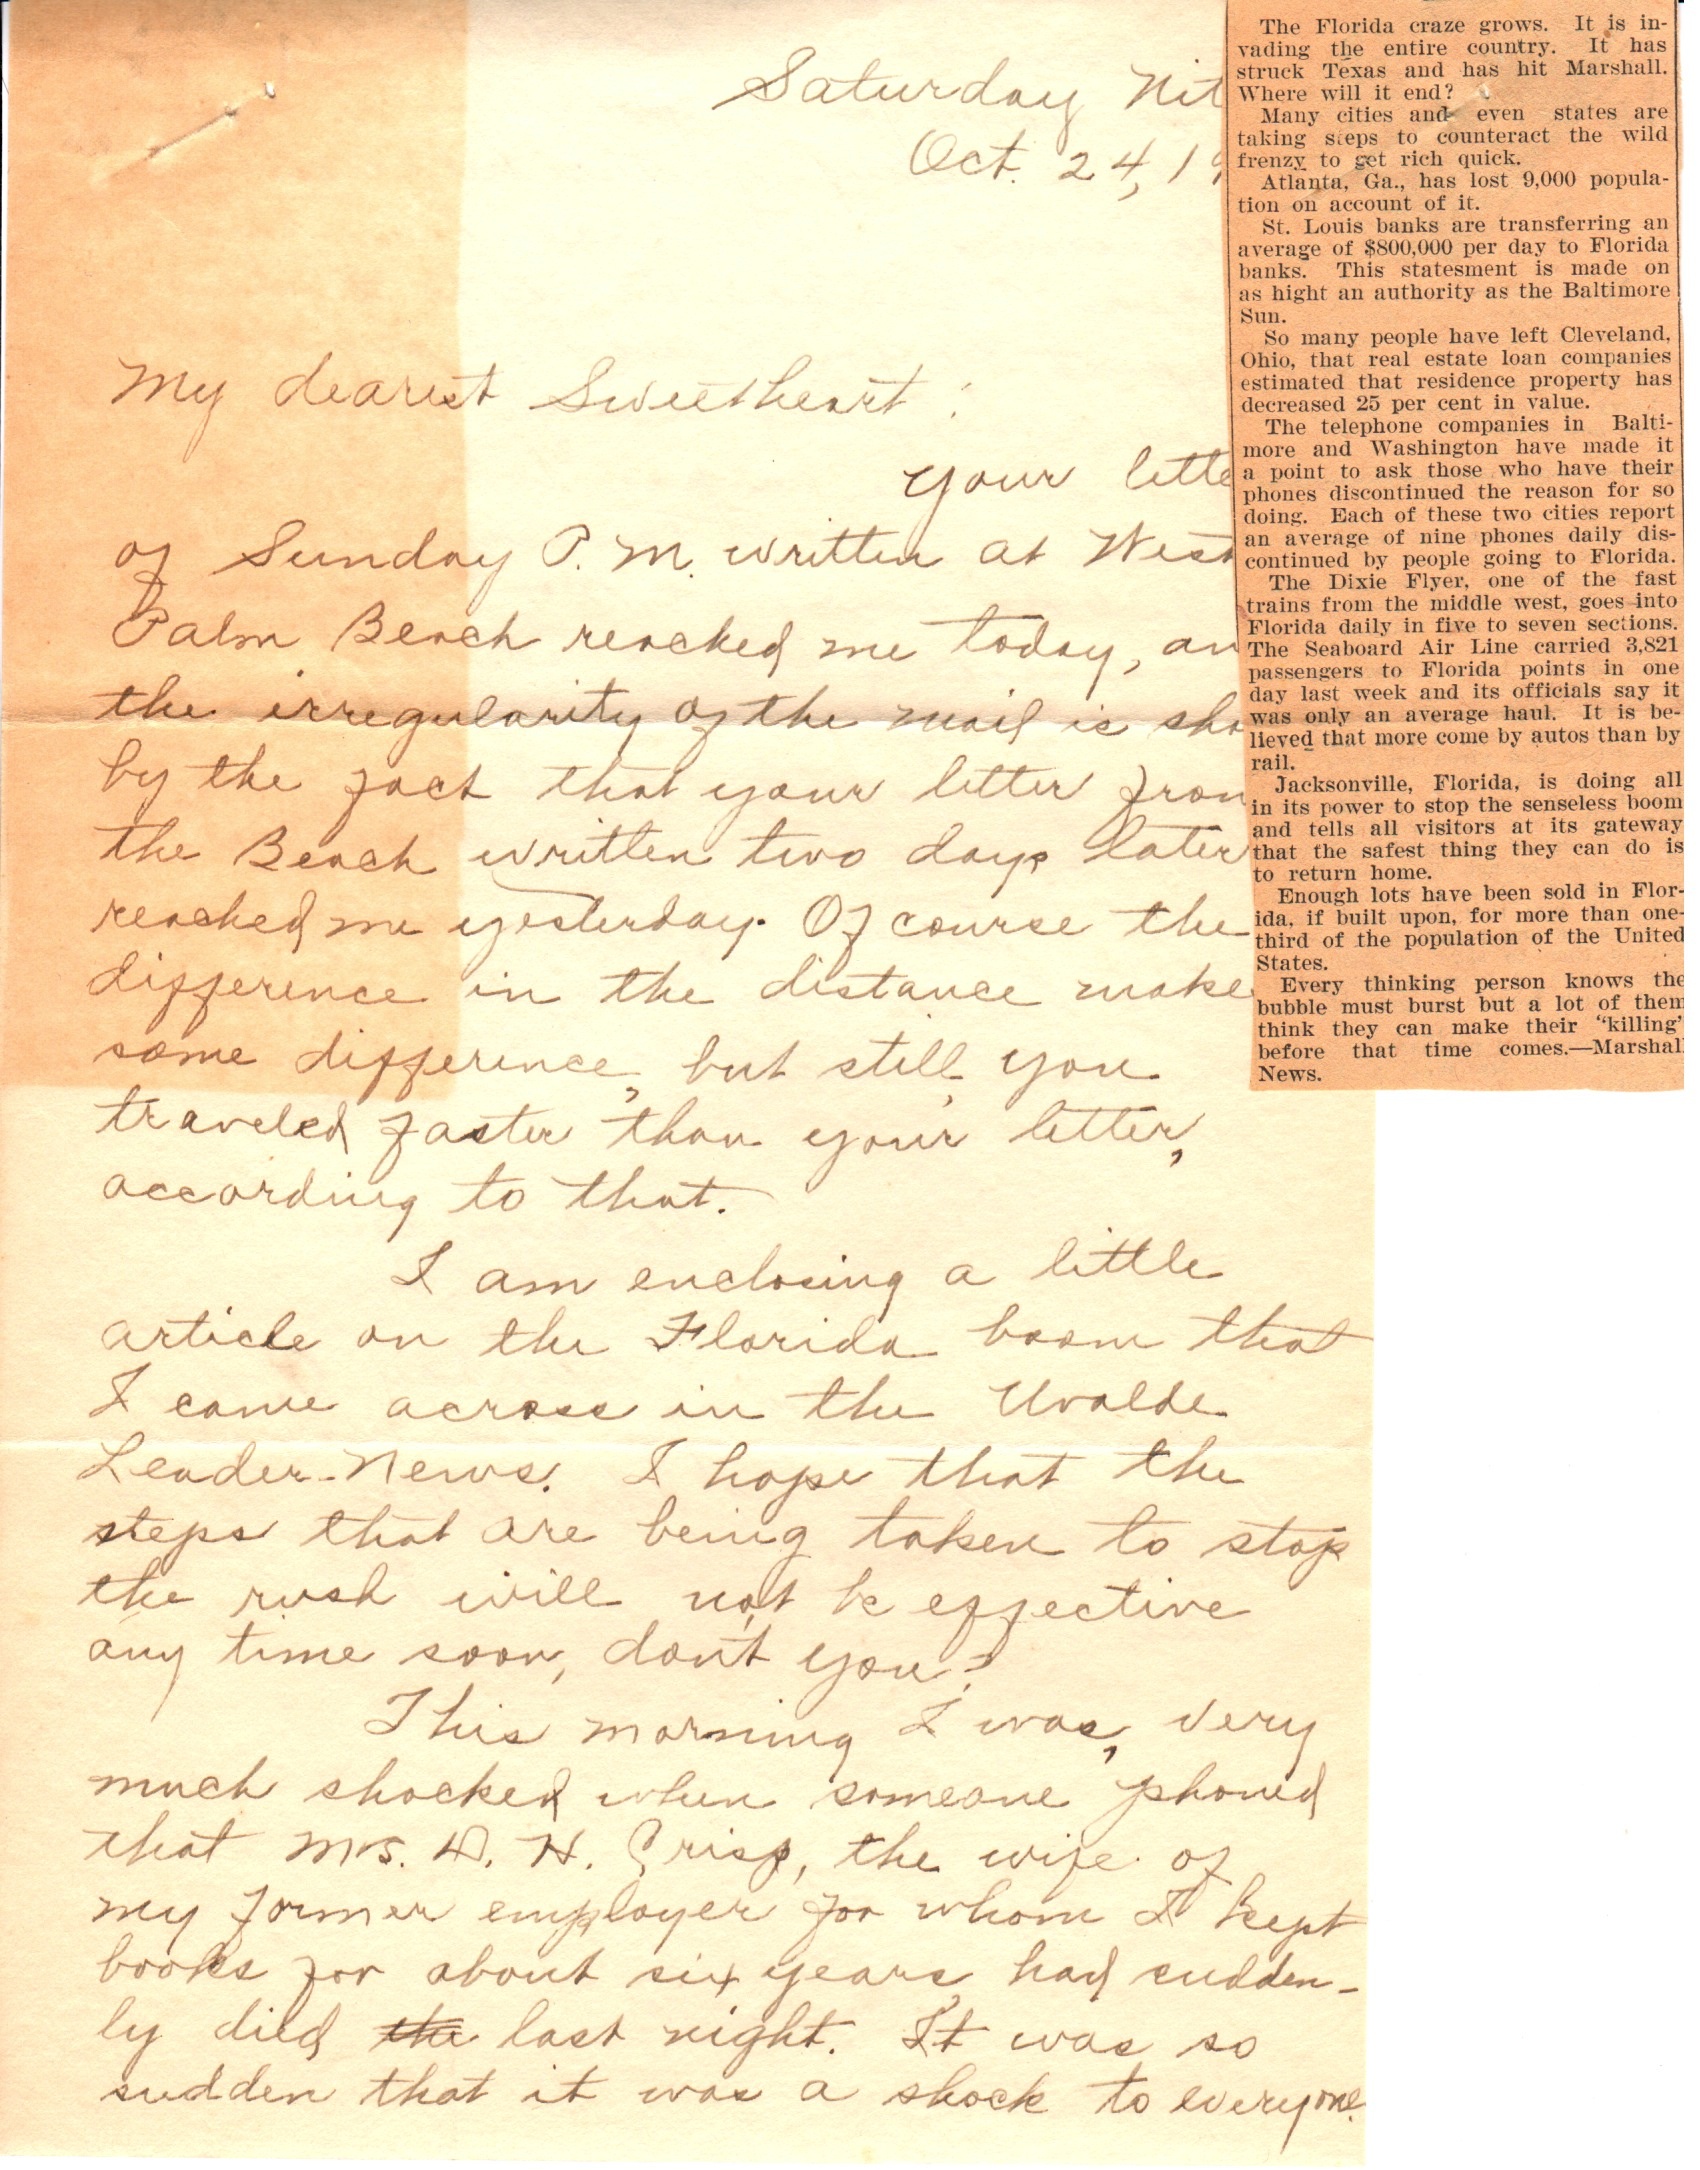 Saturday Nit
Oct. 24, 19
My dearest Sweetheart:
Your lette
of Sunday P.M. written at West
Palm Beach reached me today, an
the irregularity of the mail is sho
by the fact that your letter from
the Beach written two days later
reached me yesterday. Of course the
difference in the distance make
some difference, but still, you
traveled faster than your letter,
according to that.
I am enclosing a little
article on the Florida boom that
I came across in the Uvalde
Leader-News. I hope that the
steps that are being taken to stop
the rush will not be effective
any time soon, don't you?
This morning I was, very
much shocked when someone phoned
that Mrs. D. H. Crisp, the wife of
my former employer for whom I kept
books for about six years, had sudden-
ly died the last night. It was so
sudden that it was a shock to everyone.
The Florida craze grows. It is in-
vading the entire country. It has
struck Texas and has hit Marshall.
Where will it end?
Many cities and even states are
taking steps to counteract the wild
frenzy to get rich quick.
Atlanta, Ga., has lost 9,000 popula-
tion on account of it.
St. Louis banks are transferring an
average of $800,000 per day to Florida
banks. This statesment is made on
as hight an authority as the Baltimore
Sun.
So many people have left Cleveland,
Ohio, that real estate loan companies
estimated that residence property has
decreased 25 per cent in value.
The telephone companies in Balti-
more and Washington have made it
a point to ask those who have their
phones discontinued the reason for so
doing. Each of these two cities report
an average of nine phones daily dis-
continued by people going to Florida.
The Dixie Flyer, one of the fast
trains from the middle west, goes into
Florida daily in five to seven sections.
The Seaboard Air Line carried 3,821
passengers to Florida points in one
day last week and its officials say it
was only an average haul. It is be-
lieved that more come by autos than by
rail.
Jacksonville, Florida, is doing all
in its power to stop the senseless boom
and tells all visitors at its gateway
that the safest thing they can do is
to return home.
Enough lots have been sold in Flor-
ida, if built upon, for more than one-
third of the population of the United
States.
Every thinking person knows the
bubble must burst but a lot of them
think they can make their "killing'
before that time comes.—Marshall
News.